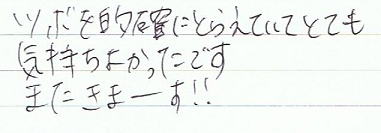 ツボを的確にとらえていてとても
気持ちよかったです
またきまーす!!